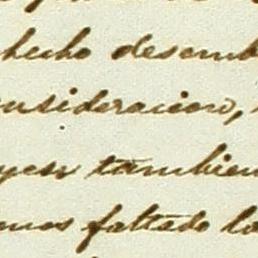 hecho desemb
nsideracion,
yen tambien
mos faltado la